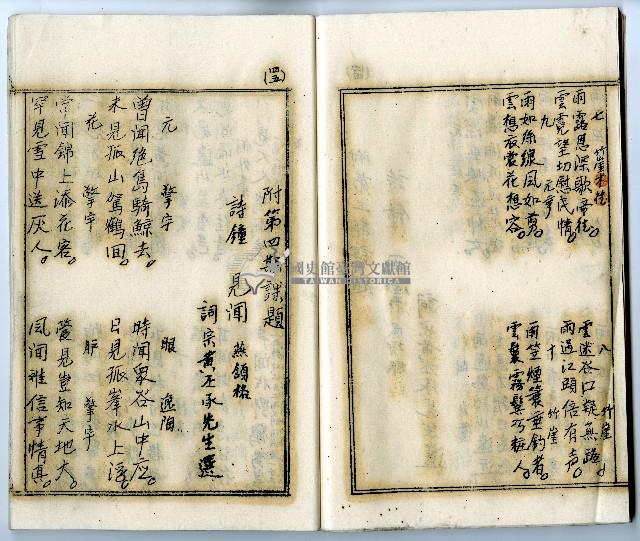 七　竹崖
雨露恩深歌帝德。
雲霓望切慰民情。
九　元亨
雨如絲線風如剪。
雲想衣裳花想容。
八　竹崖
雲迷谷口疑無路。
雨過江頭倍有聲。
十　竹崖
雨笠煙簑垂釣者。
雲鬟霧鬢巧粧人。
(四五)
附第四期課題
詩鐘　見聞　燕頷格
詞宗黃丕承先生選
元　擎宇
曾聞絕島騎鯨去。
未見孤山駕鶴回。
花　擎宇
常聞錦上添花客。
罕見雪中送灰人。
眼　逸陶
時聞眾谷山中应。
日見孤峯水上浮。
胪　擎宇
鶯見豈知天地大。
風聞难信事情真。
國史館臺灣文獻館
TAIWAN HISTORICA